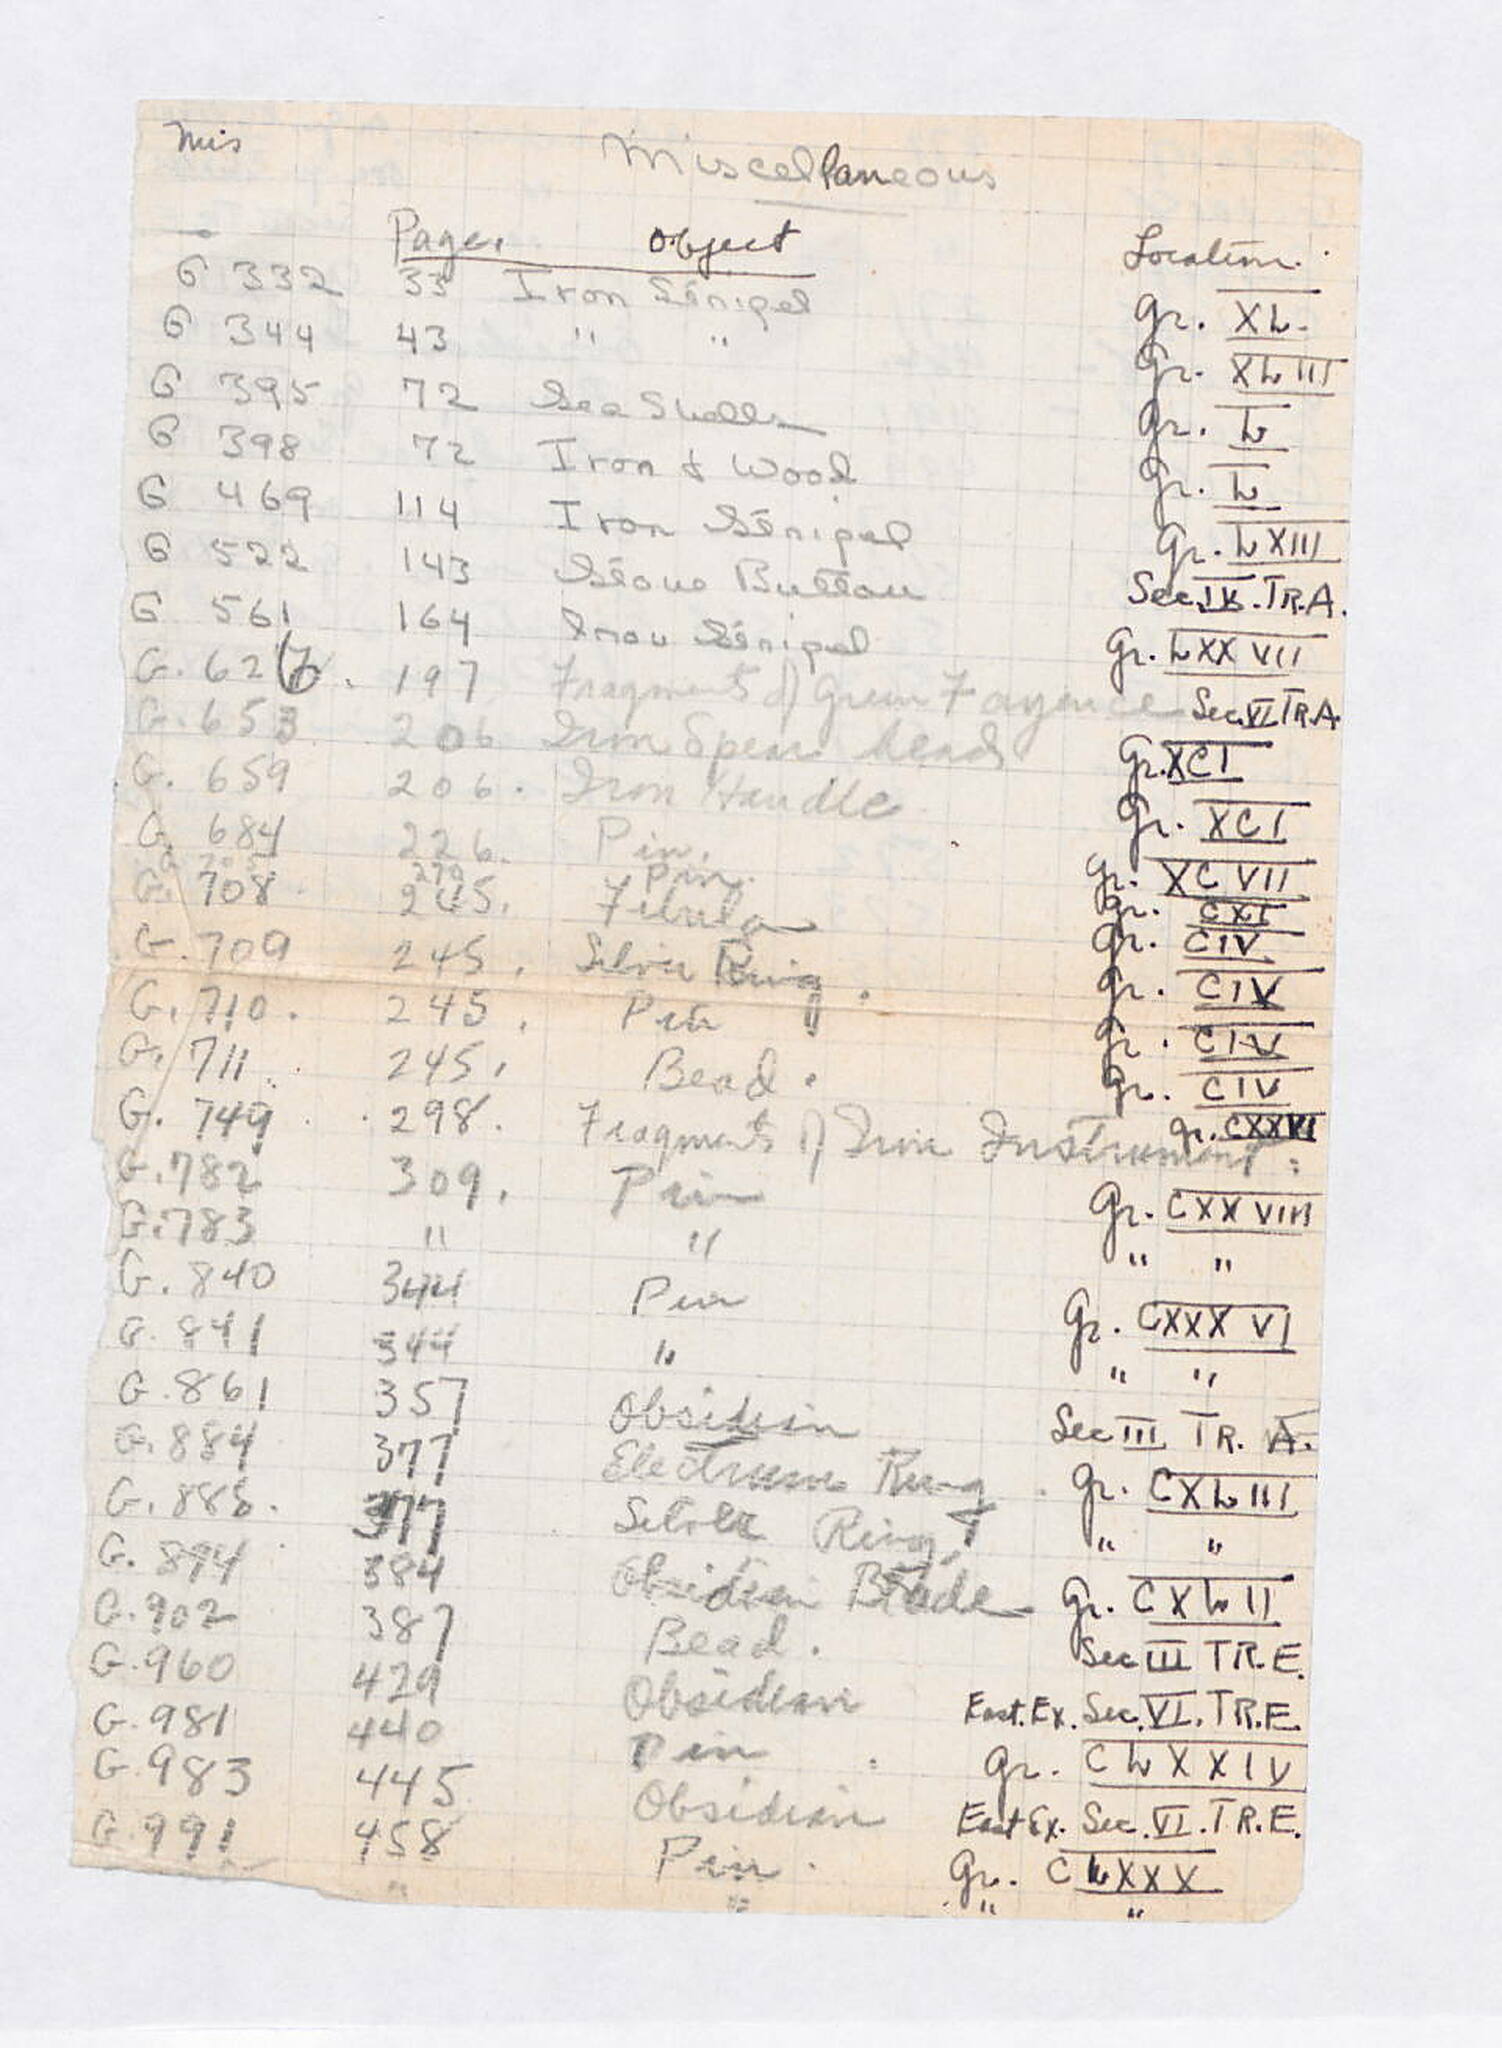 Mis
Miscellaneous
Page. Object Location.
G 332 33 Iron Strigel Gr. XL.
G 344 43 " " Gr. XLIII
G 395 72 Sea Shells Gr. L
G 398 72 Iron & Wood Gr. L
G 469 114 Iron Strigel Gr. LXIII
G 522 143 Stone Button Sec. IX. TR.A.
G 561 164 Iron Strigel Gr. LXXVII
G. 627. 197 Fragments of Green Fayence Sec. VI TR.A.
G. 653 206 Iron Spear head Gr. XCI
G. 659 206. Iron Handle Gr. XCI
G. 684 226. Pin. Gr. XCVII
G 270 Pin. Gr. CXI
G. 708 245. Fibula Gr. CIV
G. 709 245. Silver Ring. Gr. CIV
G. 710. 245. Pin Gr. CIV
G. 711 245. Bead. Gr. CIV
G. 749 298. Fragments of Iron Instrument. Gr. CXXVI
G. 782 309. Pin Gr. CXXVIII
G. 783 " " " "
G. 840 344 Pin Gr. CXXXVI
G. 841 344 " " "
G. 861 357 Obsidian Sec III TR. A.
G. 884 377 Electrum Ring Gr. CXLIII
G. 885. 377 Silver Ring. " "
G. 894 384 Obsidian Blade Gr. CXLII
G. 902 387 Bead. Sec III TR.E.
G. 960 429 Obsidian East. Ex. Sec. VI. TR.E.
G. 981 440 Pin Gr. CLXXIV
G. 983 445 Obsidian East Ex. Sec. VI. TR.E.
G. 991 458 Pin. Gr. CLXXX
" " " "